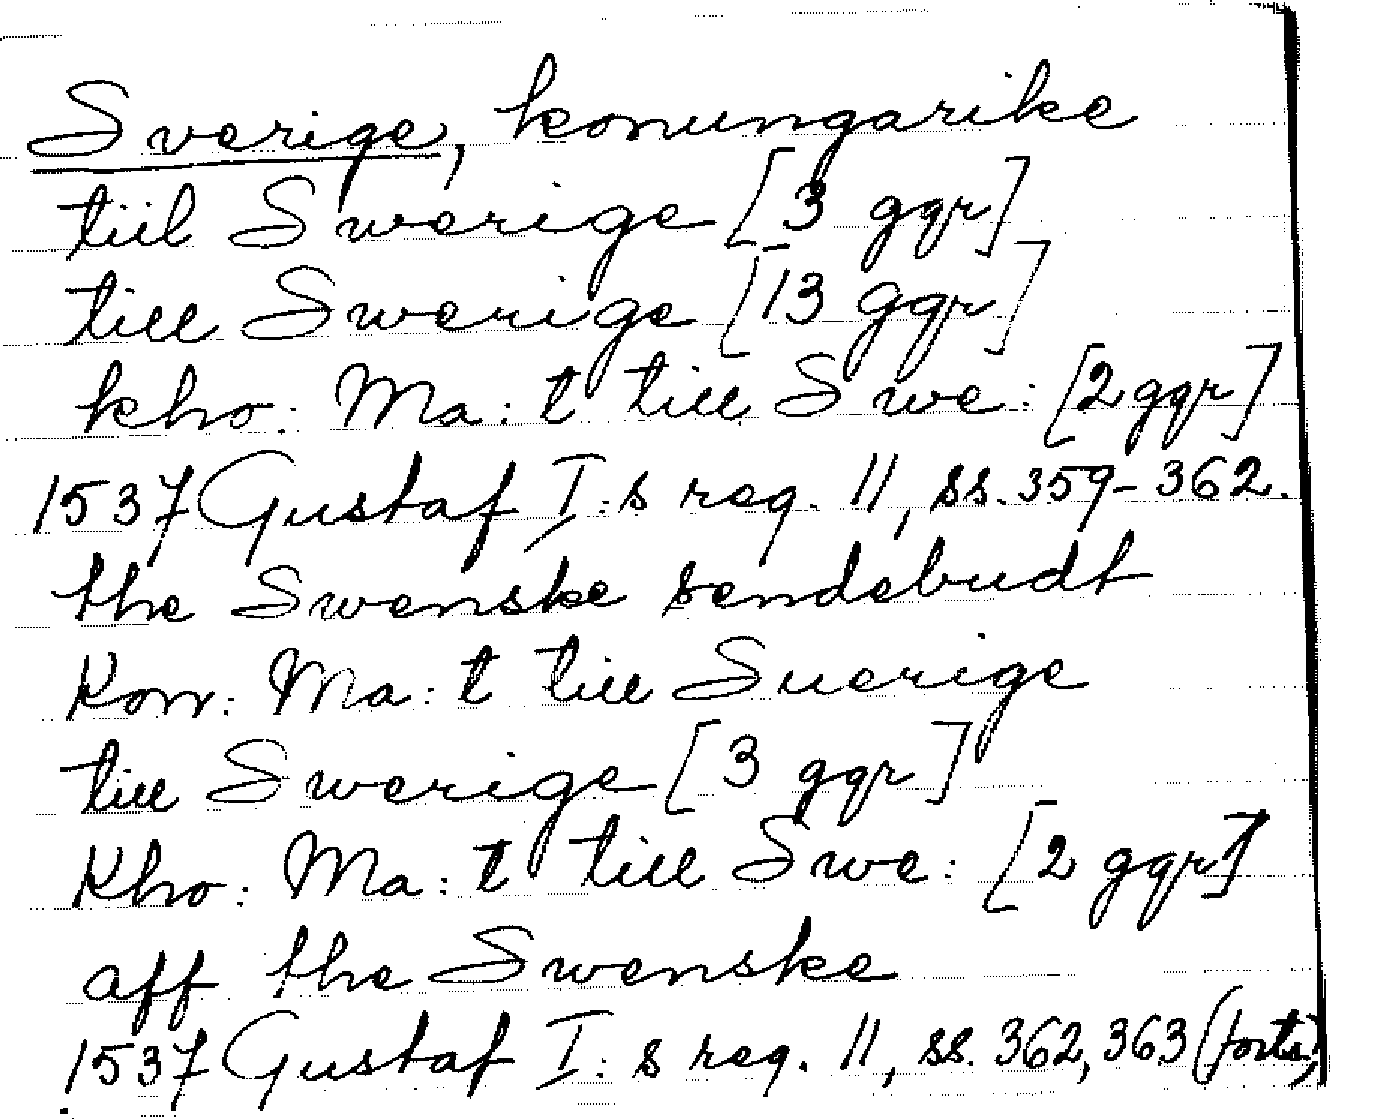 Sverige, konungarike
tiil Swerige [3 ggr]
till Swerige [13 ggr]
kho: Ma: t till Swe: [2 ggr]
1537 Gustaf I:s reg. 11, ss. 359-362.
the Swenske sendebudt
Kon: Ma: t till Suerige
till Swerige [3 ggr]
Kho: Ma: t till Swe: [2 ggr]
aff the Swenske
1537 Gustaf I:s reg. 11, ss. 362, 363 (forts.)